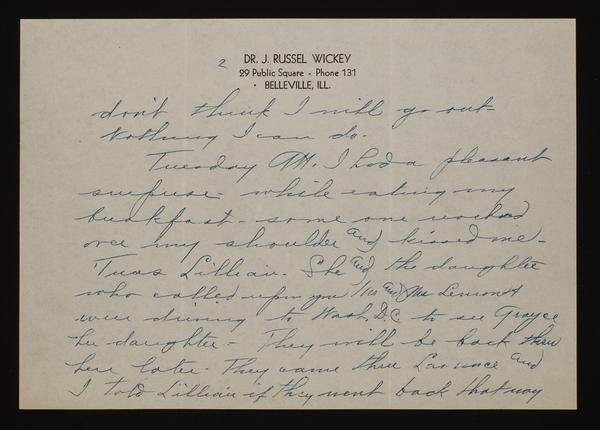 2
DR. J. RUSSEL WICKEY
29 Public Square - Phone 131
BELLEVILLE, ILL.
don't think I will go out-
Nothing I can do.
Tuesday AM. I had a pleasant
surprise - while eating my
breakfast - some one reached
over my shoulder and kissed me -
'Twas Lillian. She and the daughter
who called upon you Mr and Mrs Lemont
were driving to Wash D.C. to see Grayce
her daughter - They will be back thru
here later. They came thru Lawrence and
I told Lillian if they went back that way